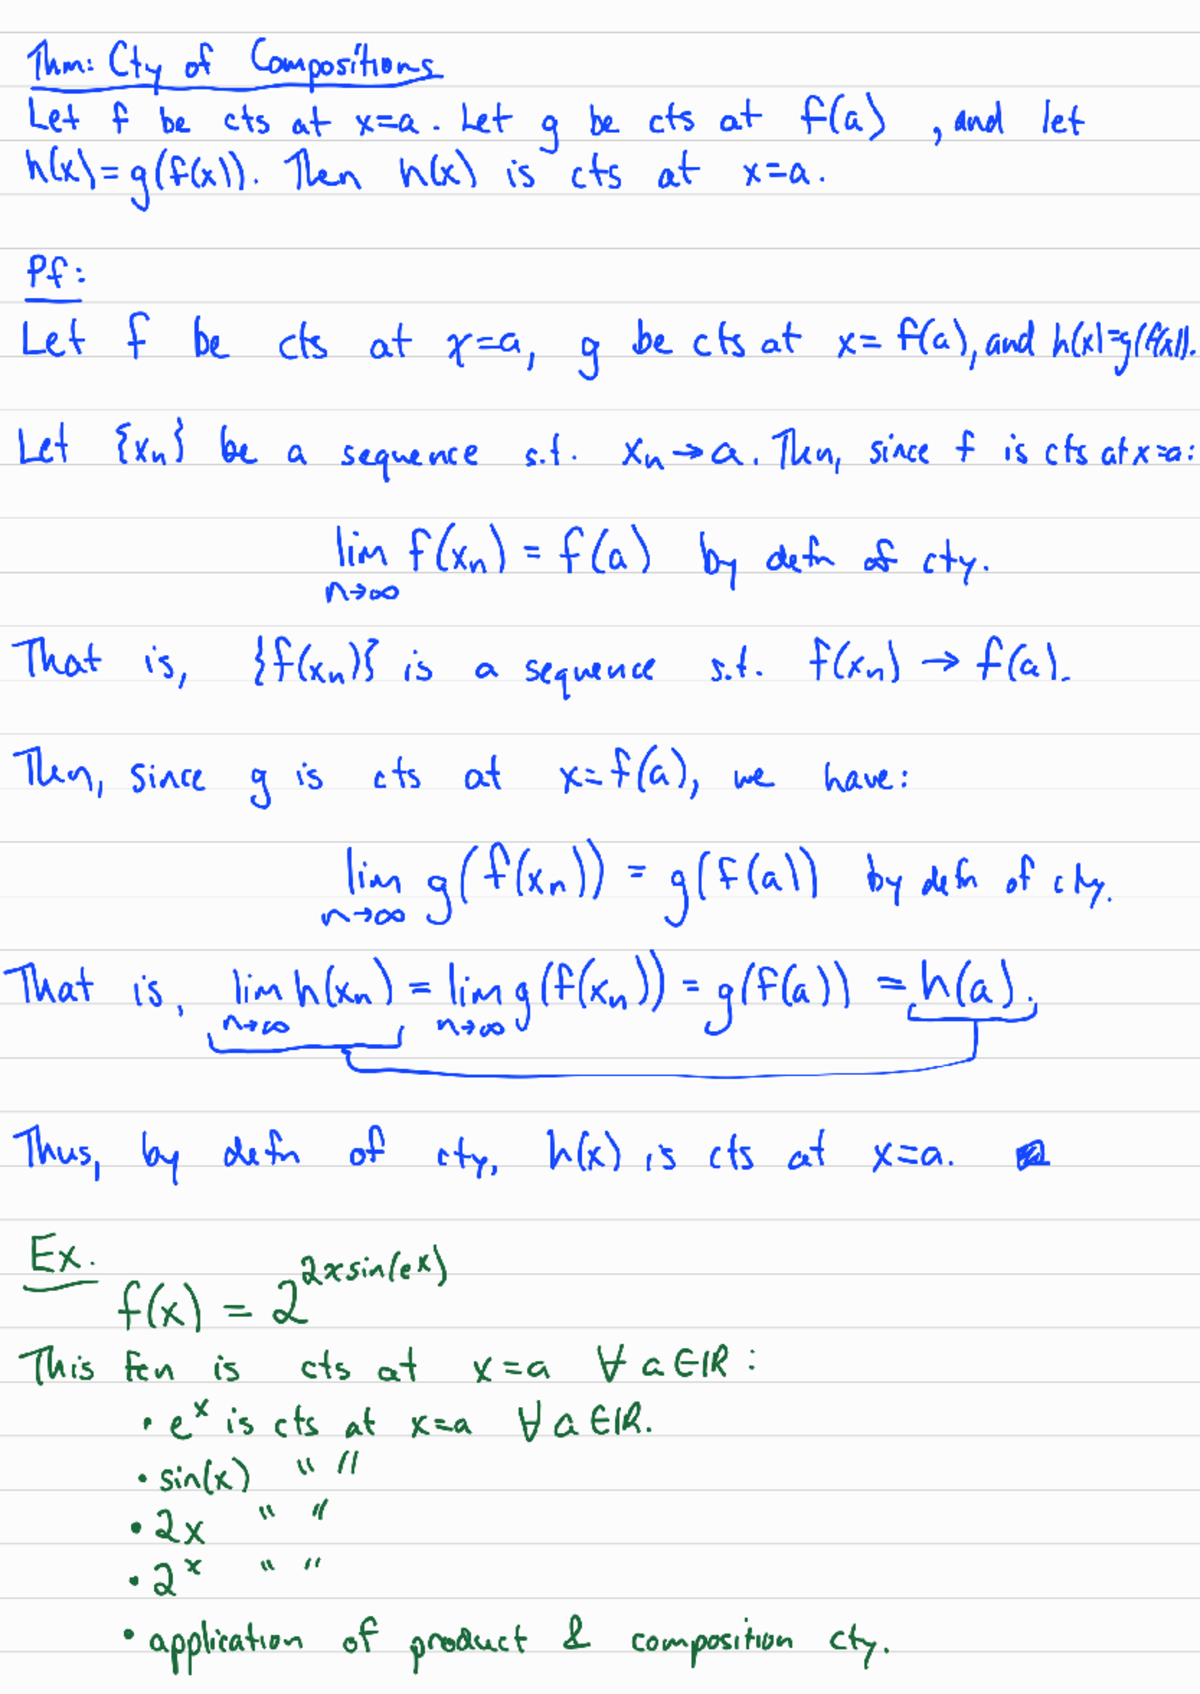 Thm: Cty of Compositions
Let f be cts at x=a. Let g be cts at f(a), and let
h(x)=g(f(x)). Then h(x) is cts at x=a.
Pf:
Let f be cts at x=a, g be cts at x=f(a), and h(x)=g(f(x)).
Let {xₙ} be a sequence s.t. xₙ→a. Then, since f is cts at x=a:
lim f(xₙ) = f(a) by defn of cty.
n→∞
That is, {f(xₙ)} is a sequence s.t. f(xₙ) → f(a).
Then, since g is cts at x=f(a), we have:
lim g(f(xₙ)) = g(f(a)) by defn of cty.
n→∞
That is, lim h(xₙ) = lim g(f(xₙ)) = g(f(a)) = h(a).
n→∞ n→∞
Thus, by defn of cty, h(x) is cts at x=a.
Ex.
f(x) = 2^{2xsin(e^x)}
This fcn is cts at x=a ∀ a∈ℝ:
• eˣ is cts at x=a ∀ a∈ℝ.
• sin(x) " "
• 2x " "
• 2ˣ " "
• application of product & composition cty.